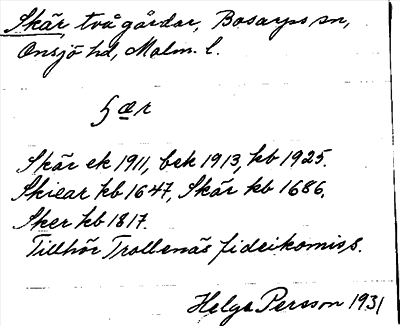 Skär, två gårdar, Bosarps sn,
Onsjö hd, Malm. l.
ʃæ̱r
Skär ek 1911, bek 1913, kb 1925.
Skiear kb 1647, Skär kb 1686.
Sker kb 1817.
Tillhör Trollenäs fideikomiss.
Helge Persson 1931